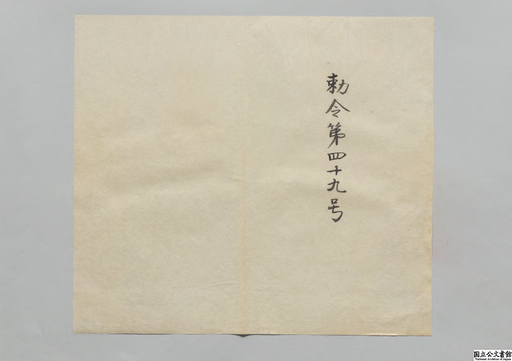 勅令第四十九号
国立公文書館
National Archives of Japan